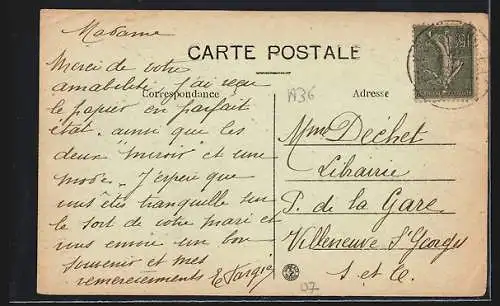 Madame
CARTE POSTALE
Merci de votre
amabilité J'ai reçu
Correspondance
Adresse
1936
le papier en parfait
état. ainsi que les
deux "miroir" et une
mode. J'espère que
vous êtes tranquille sur
le sort de votre mari et
vous envoie un bon
souvenir et mes
remerciements
Mme Déchet
Librairie
P. de la Gare
Villeneuve St Georges
S. et O.
07